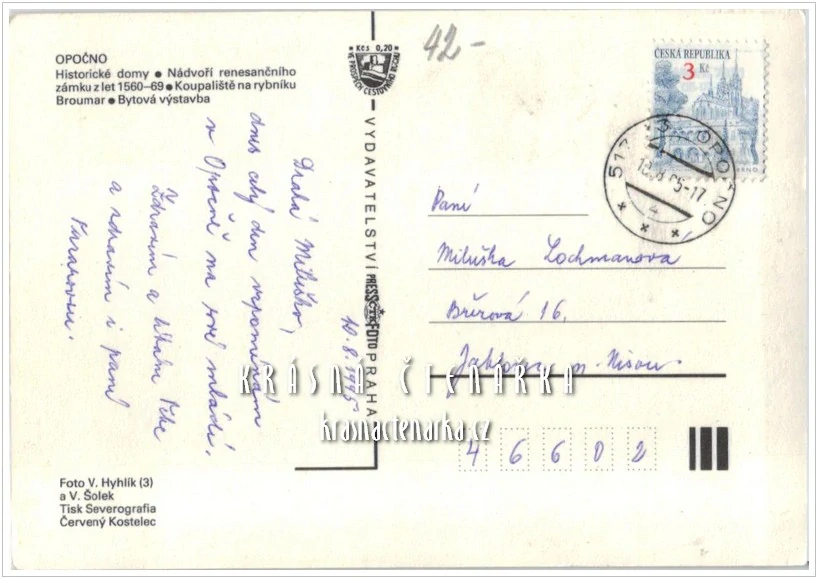 OPOČNO
Historické domy ● Nádvoří renesančního
zámku z let 1560–69 ● Koupaliště na rybníku
Broumar ● Bytová výstavba
Kčs 0,20
VE PROSPĚCH CESTOVNÍHO RUCHU
42-
ČESKÁ REPUBLIKA
3 Kč
OPOČNO
10.8.1995
Drahá Miluško,
dnes celý den vzpomínám
v Opočně na své mládí.
Zdravím a líbám Tebe
a zdravím i paní
VYDAVATELSTVÍ PRESSFOTO PRAHA
Paní
Miluška Lochmanova
Břízová 16,
Jablonec n. Nisou
46602
KRÁSNÁ ČTENÁRKA
krasnactenarka.cz
Foto V. Hyhlík (3)
a V. Šolek
Tisk Severografia
Červený Kostelec